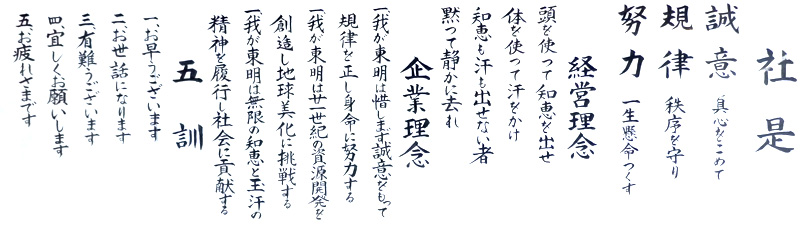 社是
誠意 真心をこめて
規律 秩序を守り
努力 一生懸命つくす
経営理念
頭を使って知恵を出せ
体を使って汗をかけ
知恵も汗も出せない者
黙って静かに去れ
企業理念
一、我が東明は惜します誠意をもって
規律を正し身命に努力する
一、我が東明は廿一世紀の資源開発を
創造し地球美化に挑戦する
一、我が東明は無限の知恵と玉汗の
精神を履行し社会に貢献する
五訓
一、お早うございます
二、お世話になります
三、有難うございます
四、宜しくお願いします
五、お疲れさまです